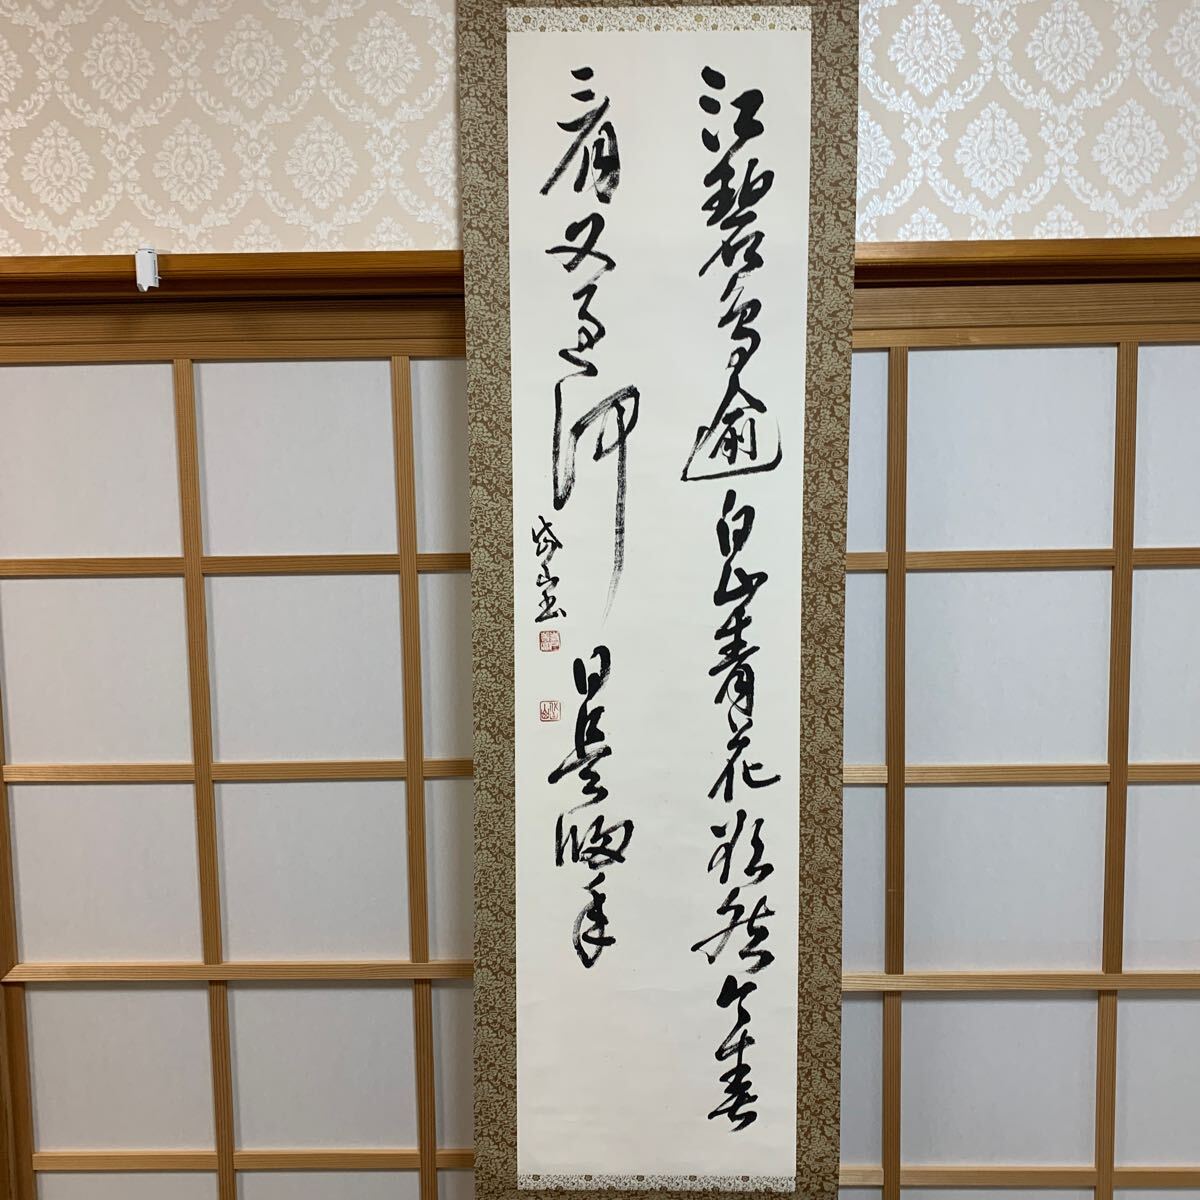 江碧鳥逾白山青花欲然今春
看又過何日是帰年
岱山書